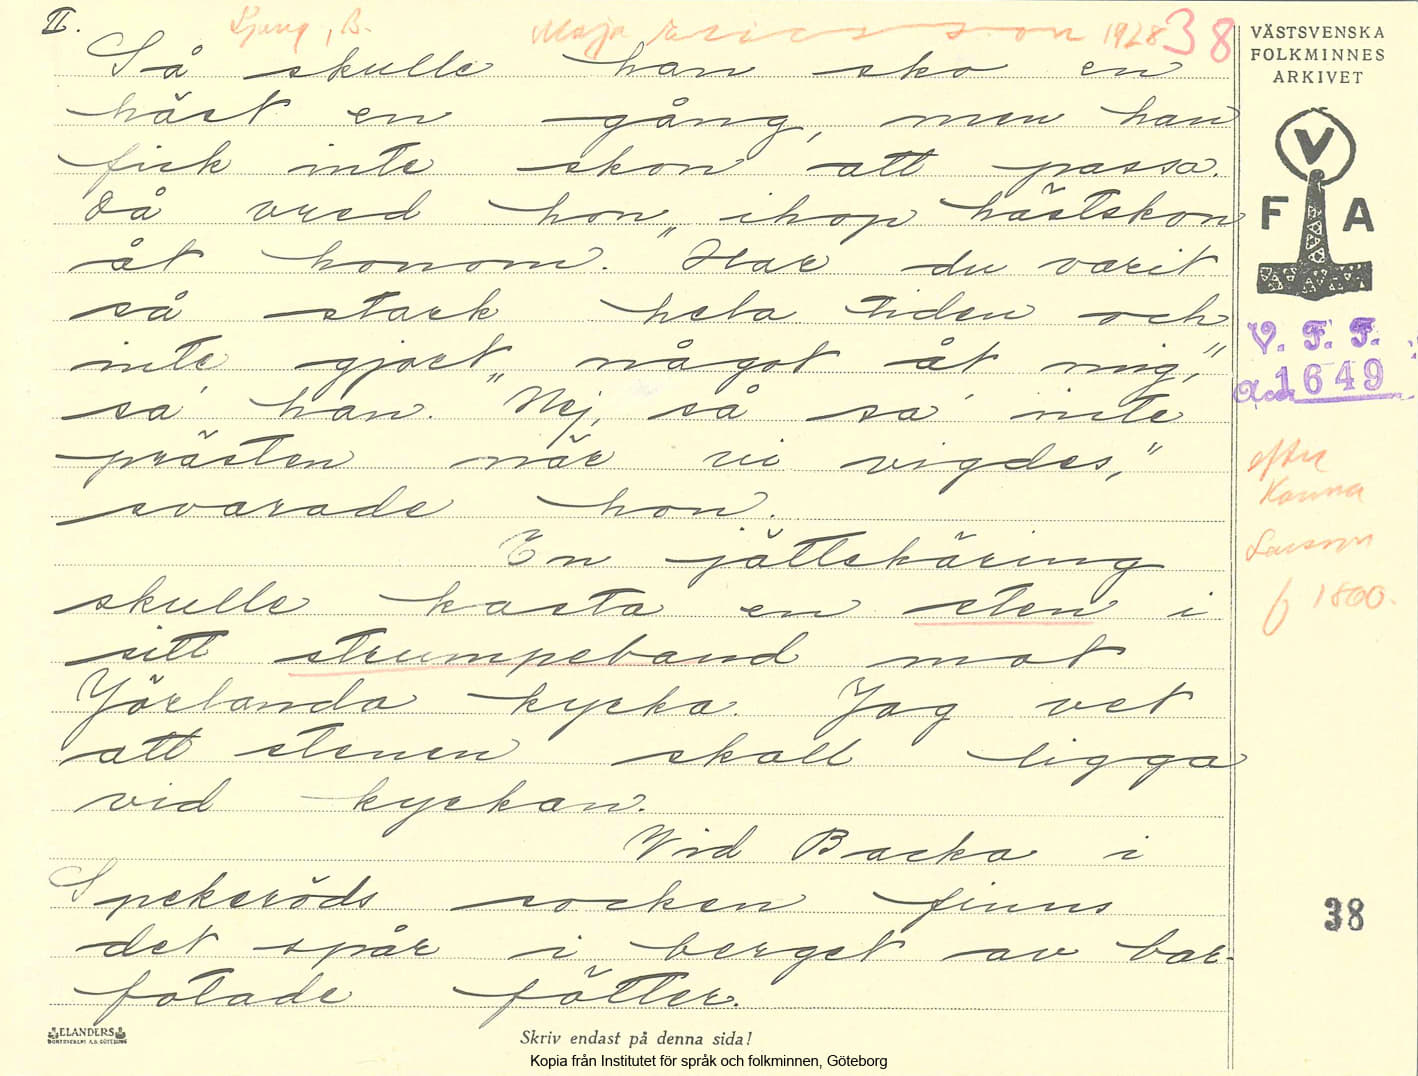 II. Ljung, B. Maja Ericsson 1928 38
Så skulle han sko en
häst en gång, men han
fick inte skon att passa.
Då vred hon ihop hästskon
åt honom. "Har du varit
så stark hela tiden och
inte gjort något åt mig,"
sa' han. "Nej, så sa' inte
prästen när vi vigdes,"
svarade hon.
En jättekäring
skulle kasta en sten i
sitt strumpeband mot
Jörlanda kyrka. Jag vet
att stenen skall ligga
vid kyrkan.
Vid Backa i
Spekeröds socken finns
det spår i berget av bar-
fotade fötter.
VÄSTSVENSKA
FOLKMINNES
ARKIVET
V
F A
V. F. F.
Acc. 1649
efter
Hanna
Larsson
f 1860.
38
ELANDERS
BOKTRYCKERI A.B. GÖTEBORG
Skriv endast på denna sida!
Kopia från Institutet för språk och folkminnen, Göteborg